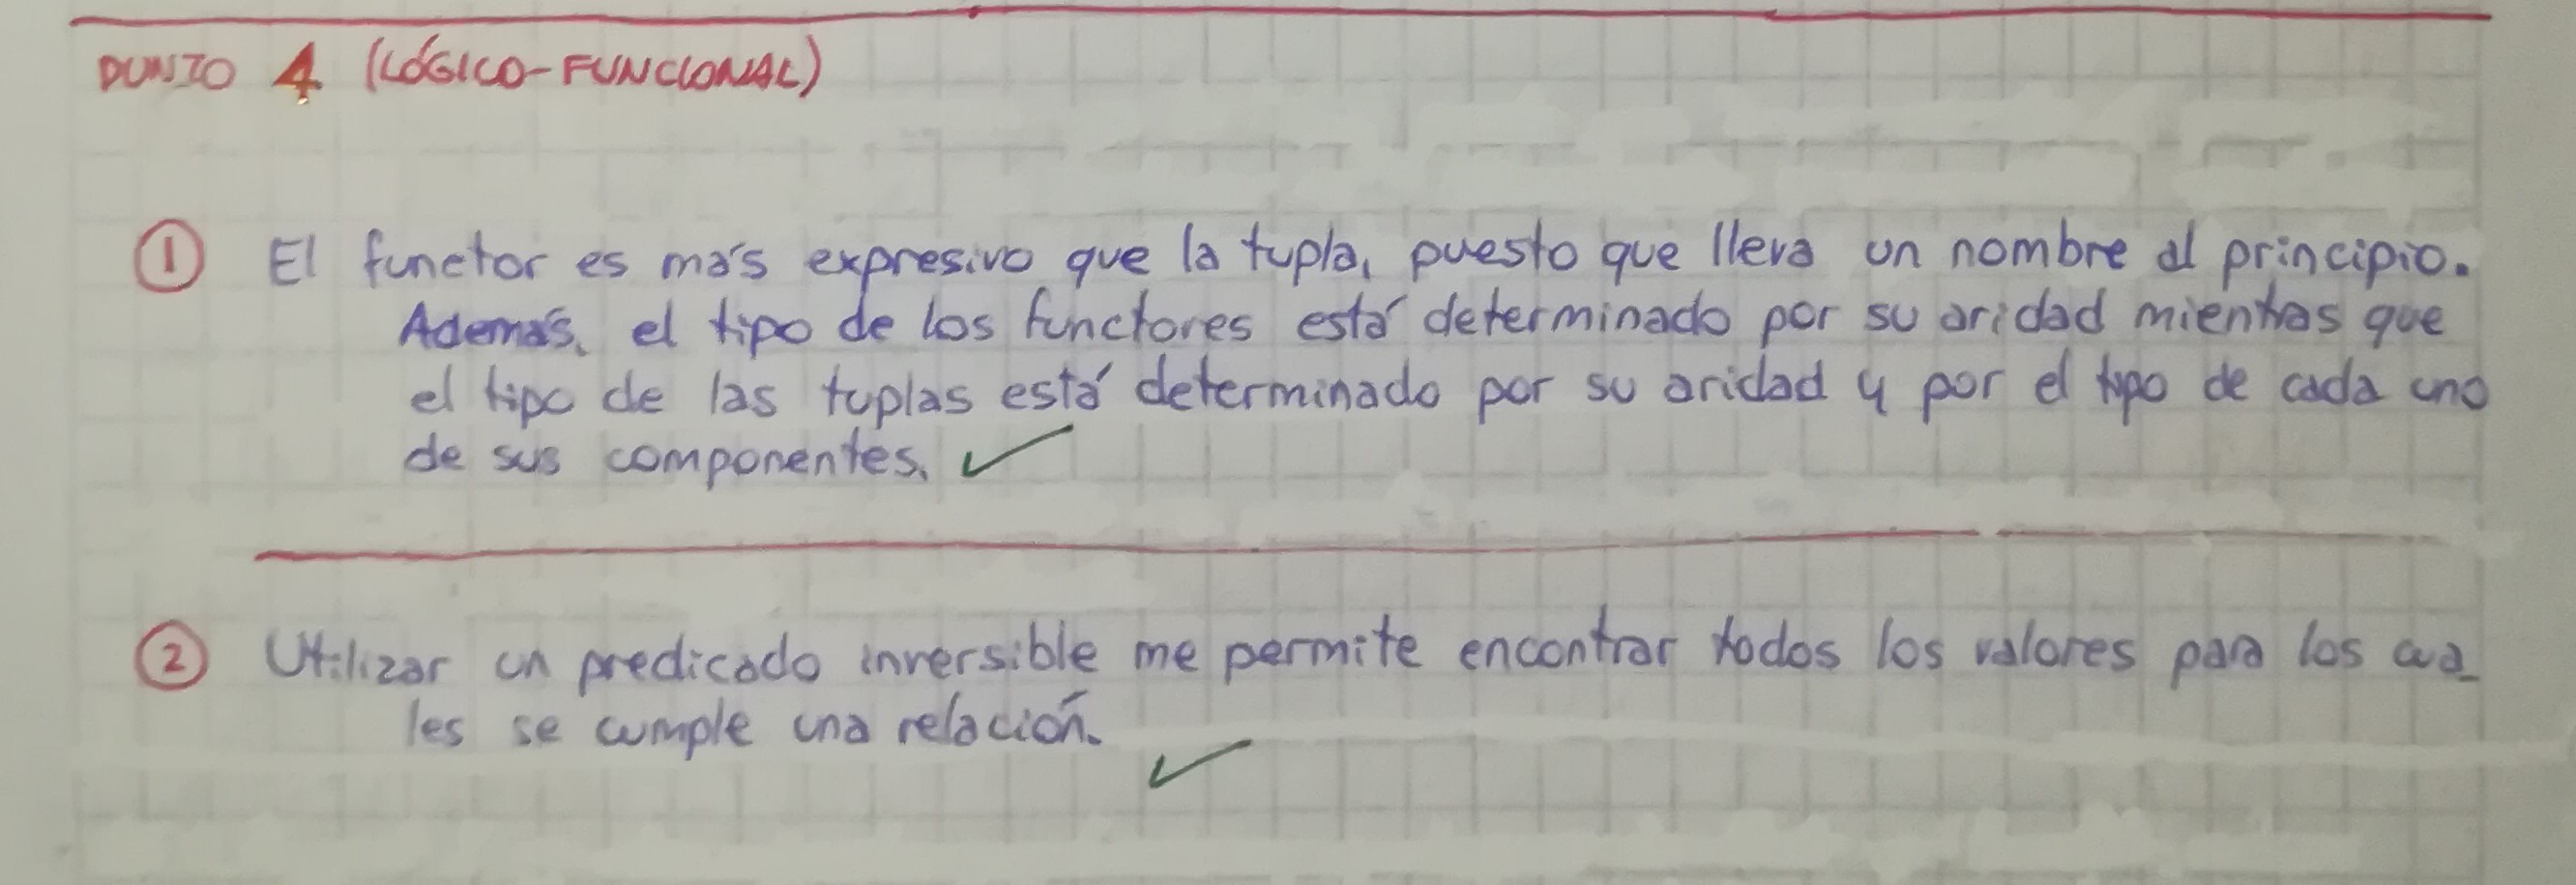 PUNTO 4 (LÓGICO-FUNCIONAL)
① El functor es más expresivo que la tupla, puesto que lleva un nombre al principio.
Además, el tipo de los functores está determinado por su aridad mientras que
el tipo de las tuplas está determinado por su aridad y por el tipo de cada uno
de sus componentes.
② Utilizar un predicado inversible me permite encontrar todos los valores para los cua_
les se cumple una relación.